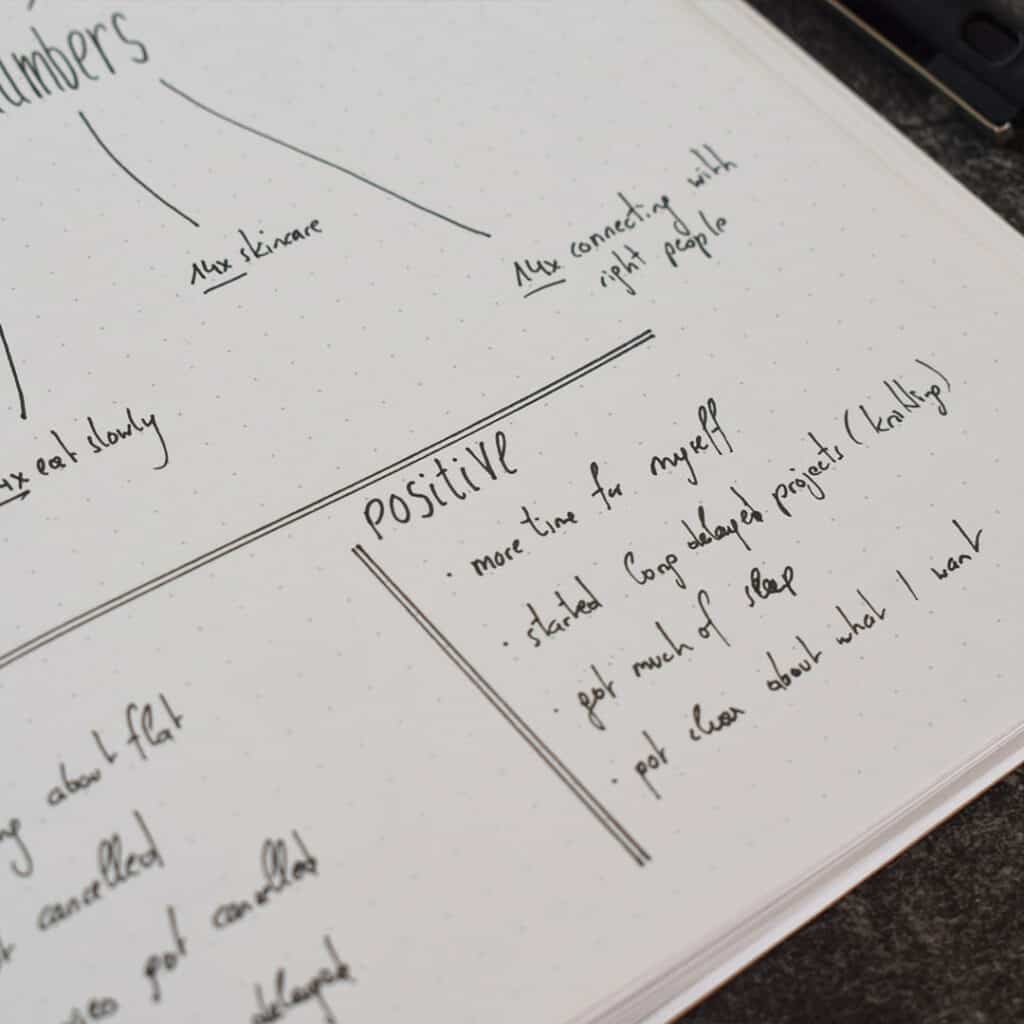 numbers
14x skincare
14x connecting with
right people
eat slowly
positive
• more time for myself
• started long delayed projects (knitting)
• got much of sleep
• got clear about what I want
about flat
cancelled
got cancelled
delayed